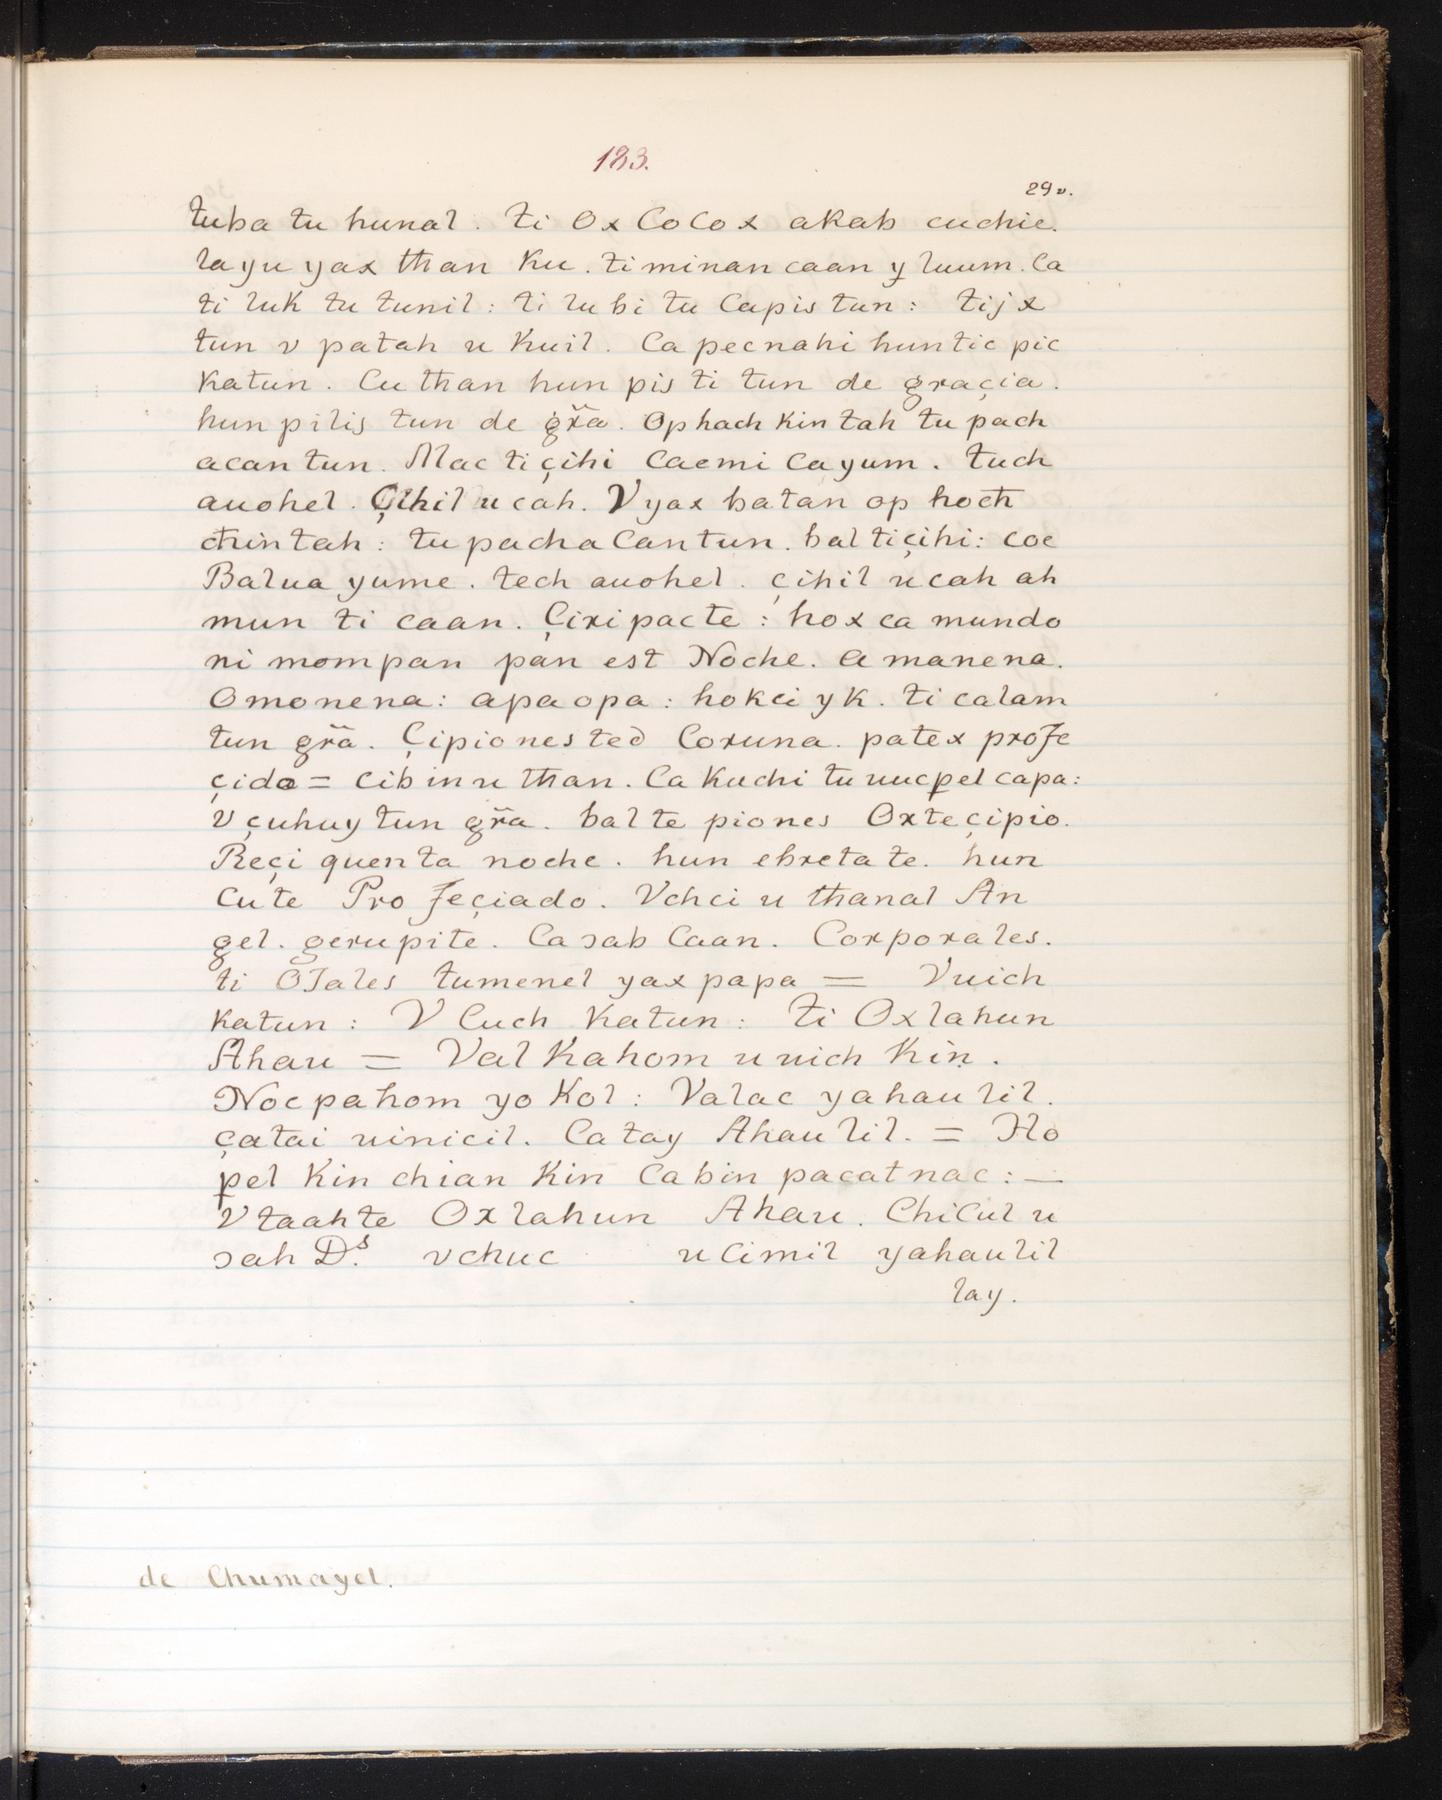 183.
29 v.
tuba tu hunal. ti Ox Cocox akab cuchie.
la yu yax than Ku. ti minan caan y̱ luum. Ca
ti luk tu tunil: ti lubi tu Capis tun: tijx
tun v patah u Kuil. Ca pecnahi huntic pic
Katun. Cu than hun pis ti tun de graçia.
hun pilis tun de gr̃a. Op hach Kin tah tu pach
acan tun. Mac ti çihi Caemi Ca yum. tuch
auohel. Çihil u cah. V yax batan op hoch
chuintah: tu pacha Cantun. bal ti çihi: coe
Balua yume. tech auohel. çihil u cah ah
mun ti caan. Çiripacte: hox ca mundo
ni mompan pan est Noche. a manena.
Omonena: apa opa: hokci yk. ti calam
tun gr̃a. Çipiones ted Coruna. patex profe
çido = cib in u than. Ca Kuchi tu uucpel capa:
v çuhuy tun gr̃a. bal te piones Oxte çipio.
Reçi quenta noche. hun ebretate. hun
Cute Profeçiado. Vchci u thanal An
gel. gerupite. Ca ɔab Caan. Corporales.
ti Otales tumenel yax papa = Vuich
Katun: V Cuch Katun: ti Oxlahun
Ahau = Val Kahom u uich Kin.
Nocpahom yo Kol: Valac yahaulil.
çatai uinicil. Ca tay Ahaulil. = Ho
pel Kin chian Kin Ca bin pacatnac: —
V taahte Oxlahun Ahau. Chicul u
ɔah Ds. vchuc u Cimil yahaulil
lay.
de Chumayel.